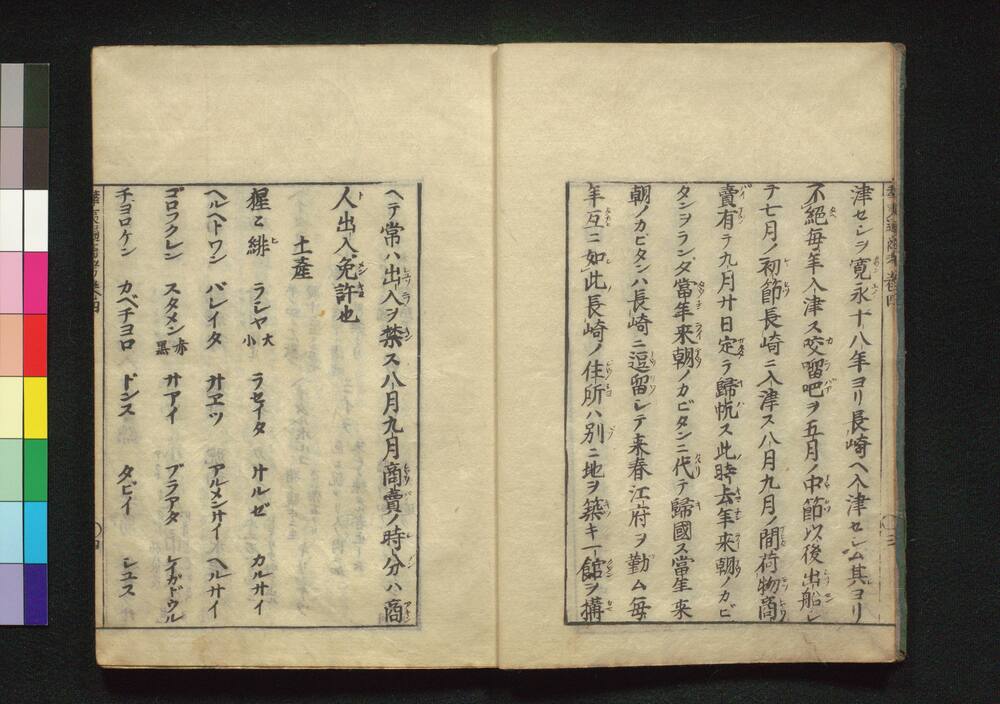 津セシヲ寛永十八年ヨリ長崎ヘ入津セシム其ヨリ
不絶毎年入津ス咬𠺕吧ヲ五月ノ中節以後出船シ
テ七月ノ初節長崎ニ入津ス八月九月ノ間荷物商
賣有テ九月廿日定テ歸帆ス此時去年来朝ノカピ
タンヲランダ當年来朝ノカピタンニ代テ歸國ス當年来
朝ノカピタンハ長崎ニ逗留シテ来春江府ヲ勤ム毎
年互ニ如此長崎ノ住所ハ別ニ地ヲ築キ一館ヲ搆
ヘテ常ハ出入ヲ禁ス八月九月商賣ノ時分ハ商
人出入免許也
土産
猩々緋 ラシヤ大小 ラセイタ サルゼ カルサイ
ヘルヘトワン バレイタ サヱツ アルメンサイ ヘルサイ
ゴロフクレン スタメン赤黒 サアイ ブラアタ レイガドウル
チヨロケン カベチヨロ ドンス タビイ シュス